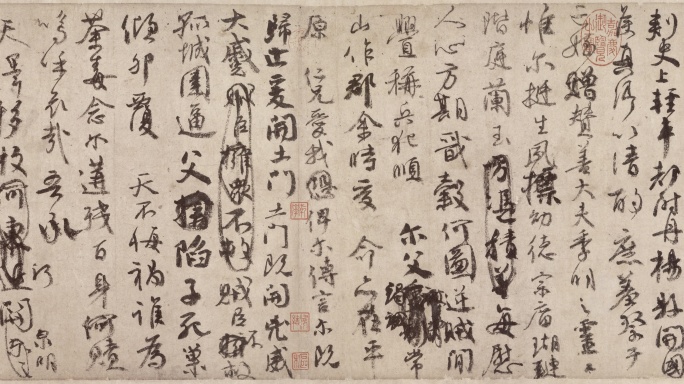 刺史上輕車都尉丹楊縣開國
侯真卿以清酌庶羞祭于
亡姪贈贊善大夫季明之靈曰
惟爾挺生夙標幼德宗廟瑚璉
階庭蘭玉方憑積善每慰
人心方期戩穀何圖逆賊間
釁稱兵犯順爾父竭誠常
山作郡余時受命亦在平
原仁兄愛我恐俾爾傳言爾既
歸止爰開土門土門既開凶威
大蹙賊臣擁眾不救賊臣不救
孤城圍逼父擒陷子死巢
傾卵覆天不悔禍誰為
荼毒念爾遘殘百身何贖
嗚呼哀哉吾承
泉明
天澤移牧河東近